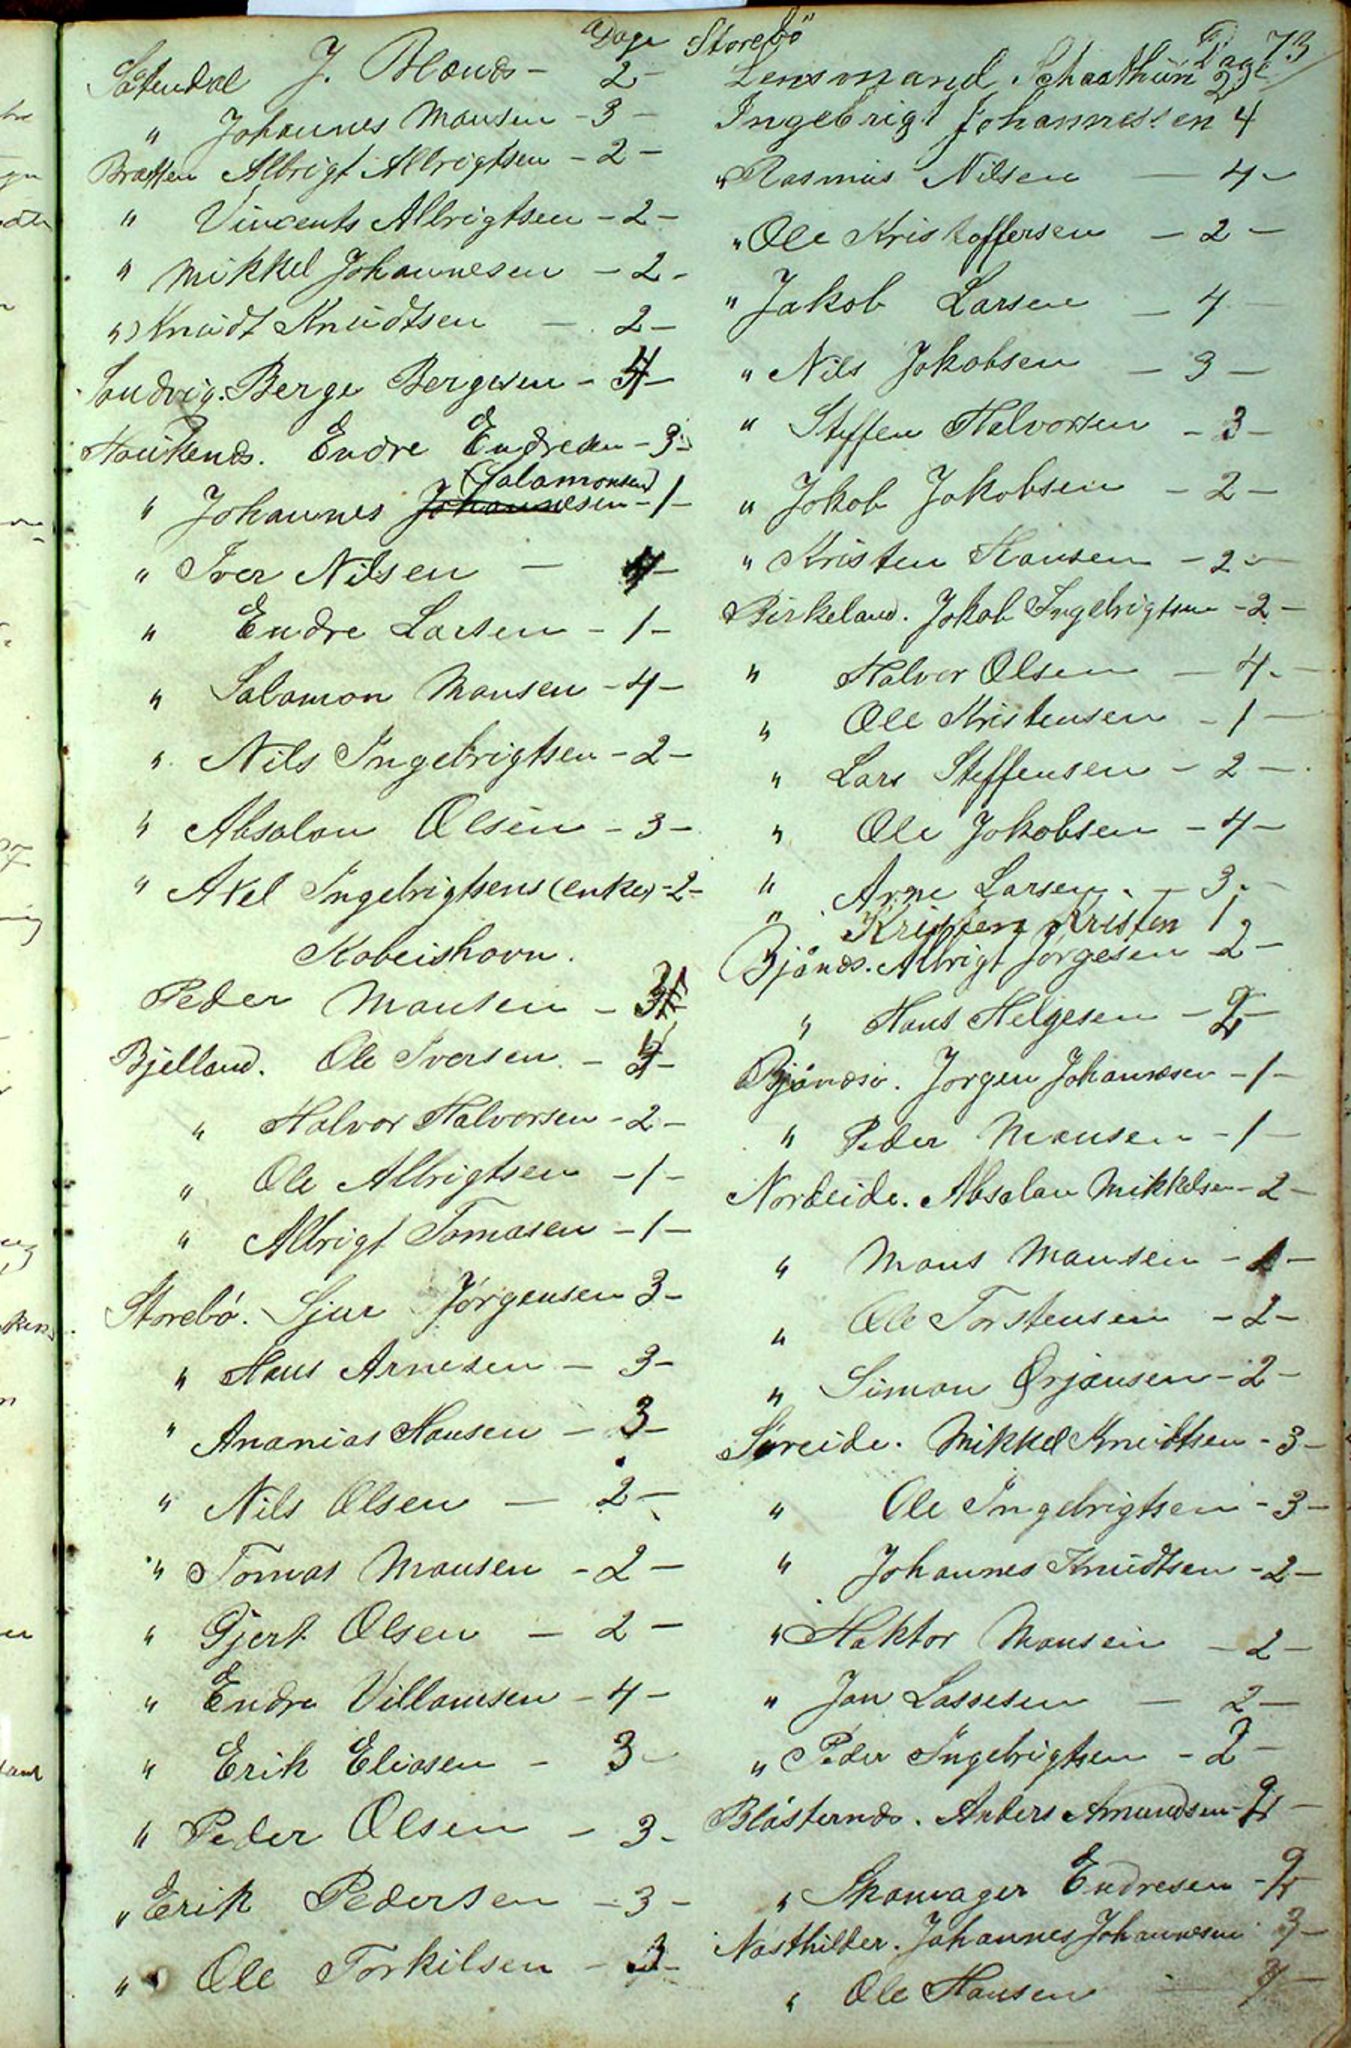 73
Dage
Sætendal J. Blænds - 2 -
" Johannes Mansen - 3 -
Bratten Albrigt Albrigtsen - 2 -
" Vincents Albrigtsen - 2 -
" Mikkel Johannesen - 2 -
" Knudt Knudtsen - 2 -
Ludvig. Berge Bergesen - 4 -
Houkends. Endre Endresen - 3 -
(Salamonsen)
" Johannes Johannesen - 1 -
" Iver Nilsen - 4 -
" Endre Larsen - 1 -
" Salamon Mansen - 4 -
" Nils Ingebrigtsen - 2 -
" Absalon Olsen - 3 -
" Axel Ingebrigtsens (enke) - 2 -
Kobeishavn.
Peder Mansen - 3
Bjelland. Ole Iversen -
" Halvor Halvorsen - 2 -
" Ole Albrigtsen - 1 -
" Albrigt Tomasen - 1 -
Storebö. Sjur Jörgensen 3 -
" Hans Arnesen - 3 -
" Ananias Hansen - 3 -
" Nils Olsen - 2 -
" Tomas Mansen - 2 -
" Gjert Olsen - 2 -
" Endre Villamsen - 4 -
" Erik Eliasen - 3 -
" Peder Olsen - 3 -
" Erik Pedersen - 3 -
" Ole Torkilsen - 3 -
Storebö Dage
Lensmand Schaathun 2
Ingebrigt Johannessen 4
" Rasmus Nilsen - 4 -
" Ole Kristoffersen - 2 -
" Jakob Larsen - 4 -
" Nils Jakobsen - 3 -
" Steffen Halvorsen - 3 -
" Jakob Jakobsen - 2 -
" Kristen Hansen - 2 -
Birkeland. Jakob Ingebrigtsen - 2 -
" Halvor Olsen - 4 -
" Ole Kristensen - 1 -
" Lars Steffensen - 2 -
" Ole Jakobsen - 4 -
" Arne Larsen - 3 -
" Kristen Kristen 1
Bjånæs. Albrigt Jörgesen 2 -
" Hans Helgesen - 2 -
Bjånæsö. Jörgen Johannesen - 1 -
" Peder Mansen - 1 -
Nordeide. Absalon Mikkelsen - 2 -
" Mons Mansen - 1 -
" Ole Torstensen - 2 -
" Simon Ørjansen - 2 -
Söreide. Mikkel Knudtsen - 3 -
" Ole Ingebrigtsen - 3 -
" Johannes Knudtsen - 2 -
" Haktor Mansen - 2 -
" Jan Lassesen - 2 -
" Peder Ingebrigtsen - 2 -
Blåsternds. Anders Amundsen - 2 -
" Skanvager Endresen - 2 -
Nåsthilder. Johannes Johannesen 3 -
" Ole Hansen - 3 -